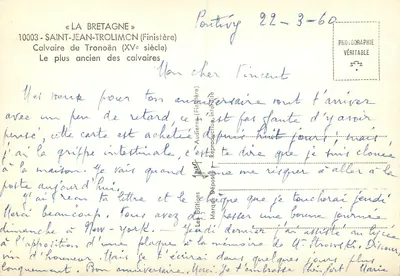 « LA BRETAGNE »
10003 - SAINT-JEAN-TROLIMON (Finistère)
Calvaire de Tronoën (XVe siècle)
Le plus ancien des calvaires
Pontivy 22-3-60
PHOTOGRAPHIE
VÉRITABLE
Mon cher Vincent
Mes vœux pour ton anniversaire vont t'arriver
avec un peu de retard, ce n'est pas faute d'y avoir
pensé, cette carte est achetée depuis huit jours; mais
j'ai la grippe intestinale, c'est te dire que je suis clouée
à la maison. Je vais quand même me risquer à aller à la
poste aujourd'hui.
J'ai reçu ta lettre et le chèque que je toucherai jeudi
Merci beaucoup. Vous avez dû passer une bonne journée
dimanche à New-York. Jeudi dernier j'ai assisté au lycée
à l'apposition d'une plaque à la mémoire de Mr
vin d'honneur. Mais je t'écrirai dans quelques jours plus
longuement. Bon anniversaire, Je t'embrasse bien fort Marie